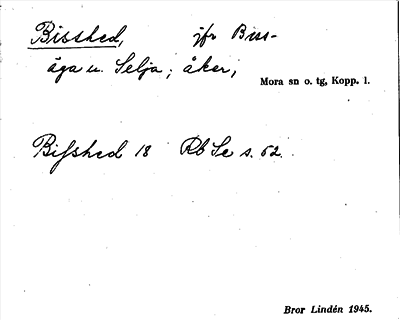 Bisshed, jfr Biss-
åga u. Selja; åker;
Mora sn o. tg, Kopp. l.
Bisshed 18 Rb Se s. 62.
Bror Lindén 1945.